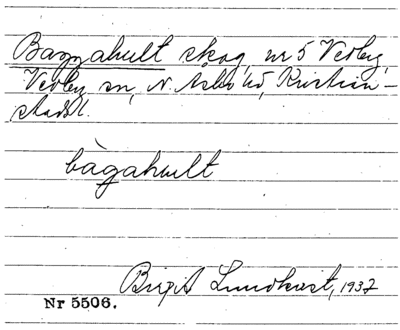 Baggahult skog, nr 5 Vedby,
Vedby sn, N. Åsbo hd, Kristian-
stads l.
bàgahult
Birgit Lundkvist, 1937
Nr 5506.